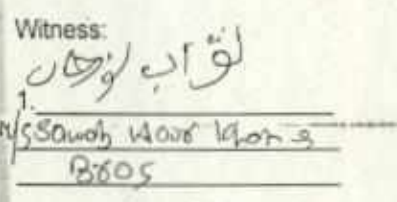 Witness:
نواب نور خان
1.
M/S Sawab Noor Khan &
Bros